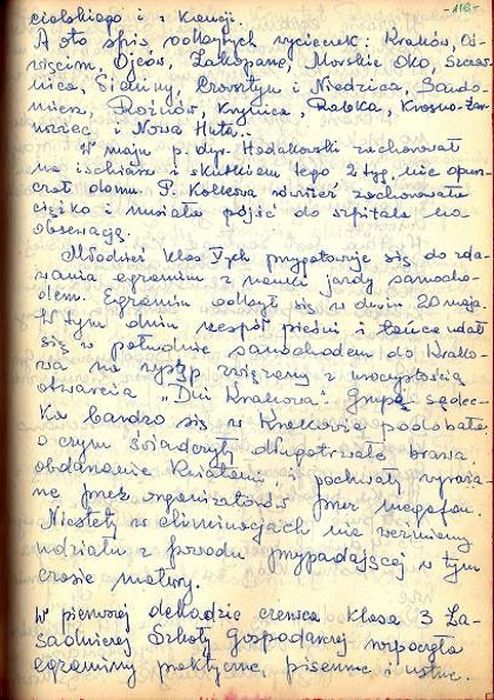 -116-
cielskiego i z Krencji.
A oto spis odbytych wycieczek: Kraków, Oś-
więcim, Ojców, Zakopane, Morskie Oko, Szczaw-
nica, Siciny, Czorsztyn i Niedzica, Sando-
mierz, Rożnów, Krynica, Rabka, Krosno-Żar-
nowiec i Nowa Huta..
W maju p. dyr. Hodakowski zachorował
na ischias i skutkiem tego 2 tyg. nie opusz-
czał domu. P. również zachorowała
ciężko i musiała pójść do szpitala na
obserwację.
Młodzież klas V tych przygotowuje się do zda-
wania egzaminu z nauki jazdy samocho-
dem. Egzamin odbył się w dniu 20 maja.
W tym dniu zespół pieśni i tańca udał
się w południe samochodem do Krako-
wa na występ związany z uroczystością
otwarcia "Dni Krakowa". Grupa sądec-
ka bardzo się w Krakowie podobała
o czym świadczyły długotrwałe brawa,
obdarowanie kwiatami i pochwały wyraża-
ne przez organizatorów przez megafon.
Niestety w eliminacjach nie weźmiemy
udziału z powodu przypadającej w tym
czasie matury.
W pierwszej dekadzie czerwca klasa 3 Za-
sadniczej Szkoły Gospodarczej rozpoczęła
egzaminy praktyczne, pisemne i ustne.